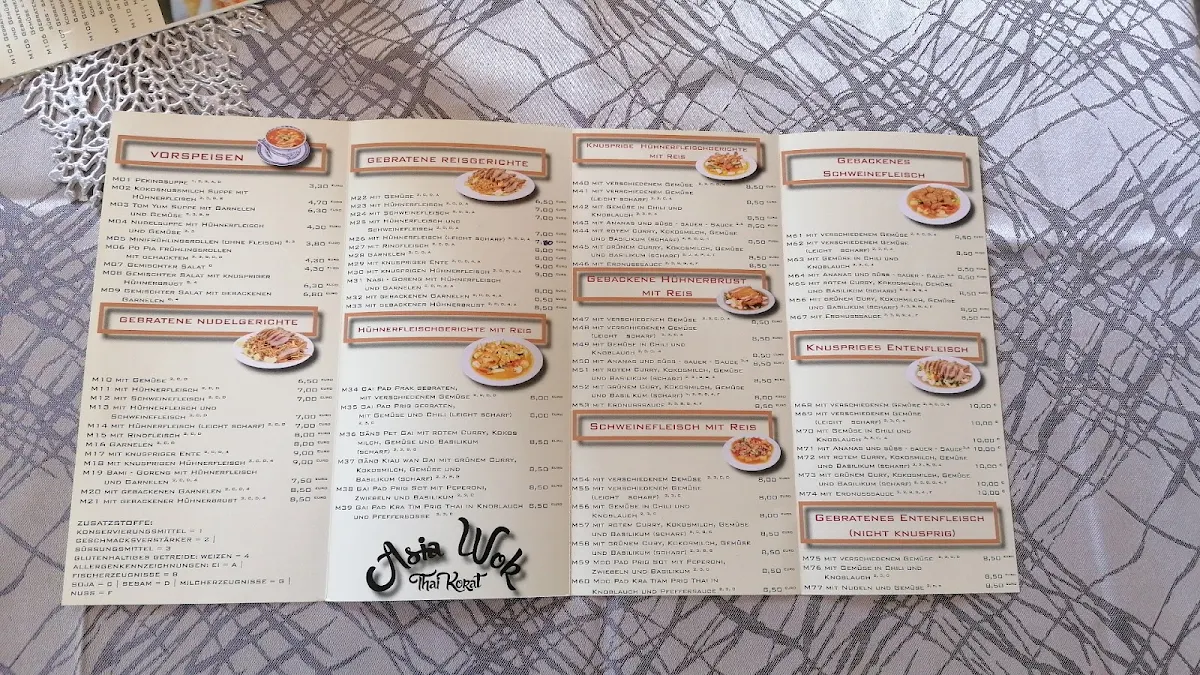 VORSPEISEN
M01 PEKINGSUPPE 3,30 EURO
M02 KOKOSNUSMILCH SUPPE MIT
HÜHNERFLEISCH 4,70 EURO
M03 TOM YUM SUPPE MIT GARNELEN
UND GEMÜSE 6,30 EURO
M04 NUDELSUPPE MIT HÜHNERFLEISCH
UND GEMÜSE 4,30 EURO
M05 MINIFRÜHLINGSROLLEN (OHNE FLEISCH) 3,80 EURO
M06 PO PIA FRÜHLINGSROLLEN
MIT GEHACKTEM 4,30 EURO
M07 GEMISCHTER SALAT 4,30 EURO
M08 GEMISCHTER SALAT MIT KNUSPRIGER
HÜHNERBRUST 6,30 EURO
M09 GEMISCHTER SALAT MIT GEBACKENEN
GARNELEN 6,80 EURO
GEBRATENE NUDELGERICHTE
M10 MIT GEMÜSE 6,50 EURO
M11 MIT HÜHNERFLEISCH 7,00 EURO
M12 MIT SCHWEINEFLEISCH 7,00 EURO
M13 MIT HÜHNERFLEISCH UND
SCHWEINEFLEISCH 7,00 EURO
M14 MIT HÜHNERFLEISCH (LEICHT SCHARF) 7,00 EURO
M15 MIT RINDFLEISCH 8,00 EURO
M16 GARNELEN 8,00 EURO
M17 MIT KNUSPRIGER ENTE 9,00 EURO
M18 MIT KNUSPRIGEN HÜHNERFLEISCH 9,00 EURO
M19 BAMI - GORENG MIT HÜHNERFLEISCH
UND GARNELEN 7,50 EURO
M20 MIT GEBACKENEN GARNELEN 8,50 EURO
M21 MIT GEBACKENER HÜHNERBRUST 8,50 EURO
ZUSATZSTOFFE:
KONSERVIERUNGSMITTEL = 1
GESCHMACKSVERSTÄRKER = 2 |
SÜSSUNGSMITTEL = 3
GLUTENHALTIGES GETREIDE: WEIZEN = 4
ALLERGENKENNZEICHNUNGEN: EI = A |
FISCHERZEUGNISSE = B
SOJA = C | SESAM = D | MILCHERZEUGNISSE = G |
NUSS = F
GEBRATENE REISGERICHTE
M22 MIT GEMÜSE 6,50 EURO
M23 MIT HÜHNERFLEISCH 7,00 EURO
M24 MIT SCHWEINEFLEISCH 7,00 EURO
M25 MIT HÜHNERFLEISCH UND
SCHWEINEFLEISCH 7,00 EURO
M26 MIT HÜHNERFLEISCH (LEICHT SCHARF)
M27 MIT RINDFLEISCH 8,00 EURO
M28 GARNELEN 8,00 EURO
M29 MIT KNUSPRIGER ENTE 9,00 EURO
M30 MIT KNUSPRIGEN HÜHNERFLEISCH 9,00 EURO
M31 NASI - GORENG MIT HÜHNERFLEISCH
UND GARNELEN
M32 MIT GEBACKENEN GARNELEN 8,50 EURO
M33 MIT GEBACKENEN HÜHNERBRUST 8,50 EURO
HÜHNERFLEISCHGERICHTE MIT REIS
M34 GAI PAD PRAK GEBRATEN,
MIT VERSCHIEDENEM GEMÜSE 8,00 EURO
M35 GAI PAD PRIG GEBRATEN,
MIT GEMÜSE UND CHILI (LEICHT SCHARF) 8,00 EURO
M36 GÄNG PET GAI MIT ROTEM CURRY, KOKOS
MILCH, GEMÜSE UND BASILIKUM
(SCHARF) 8,50 EURO
M37 GÄNG KIAU WAN GAI MIT GRÜNEM CURRY,
KOKOSMILCH, GEMÜSE UND
BASILIKUM (SCHARF) 8,50 EURO
M38 GAI PAD PRIG SOT MIT PEPERONI,
ZWIEBELN UND BASILIKUM 8,50 EURO
M39 GAI PAD KRA TIM PRIG THAI IN KNOBLAUCH
UND PFEFFERSOSSE 8,50 EURO
Asia Wok
Thai Korat
KNUSPRIGE HÜHNERFLEISCHGERICHTE
MIT REIS
M40 MIT VERSCHIEDENEM GEMÜSE 8,50 EURO
M41 MIT VERSCHIEDENEM GEMÜSE
(LEICHT SCHARF) 8,50 EURO
M42 MIT GEMÜSE IN CHILI UND
KNOBLAUCH 8,50 EURO
M43 MIT ANANAS UND SÜSS - SAUER - SAUCE 8,50
M44 MIT ROTEM CURRY, KOKOSMILCH, GEMÜSE
UND BASILIKUM (SCHARF) 8,50 EURO
M45 MIT GRÜNEM CURRY, KOKOSMILCH, GEMÜSE
UND BASILIKUM (SCHARF) 8,50 EURO
M46 MIT ERDNUSSSAUCE 8,50 EURO
GEBACKENE HÜHNERBRUST
MIT REIS
M47 MIT VERSCHIEDENEM GEMÜSE 8,50 EURO
M48 MIT VERSCHIEDENEM GEMÜSE
(LEICHT SCHARF) 8,50 EURO
M49 MIT GEMÜSE IN CHILI UND
KNOBLAUCH 8,50 EURO
M50 MIT ANANAS UND SÜSS - SAUER - SAUCE 8,50 EURO
M51 MIT ROTEM CURRY, KOKOSMILCH, GEMÜSE
UND BASILIKUM (SCHARF) 8,50 EURO
M52 MIT GRÜNEM CURY, KOKOSMILCH, GEMÜSE
UND BASILIKUM (SCHARF) 8,50 EURO
M53 MIT ERDNUSSSAUCE 8,50 EURO
SCHWEINEFLEISCH MIT REIS
M54 MIT VERSCHIEDENEM GEMÜSE 8,00 EURO
M55 MIT VERSCHIEDENEM GEMÜSE
(LEICHT SCHARF) 8,00 EURO
M56 MIT GEMÜSE IN CHILI UND
KNOBLAUCH 8,00 EURO
M57 MIT ROTEM CURRY, KOKOSMILCH, GEMÜSE
UND BASILIKUM (SCHARF) 8,50 EURO
M58 MIT GRÜNEM CURY, KOKOSMILCH, GEMÜSE
UND BASILIKUM (SCHARF) 8,50 EURO
M59 MOO PAD PRIG SOT MIT PEPERONI,
ZWIEBELN UND BASILIKUM 8,50 EURO
M60 MOO PAD KRA TIAM PRIG THAI IN
KNOBLAUCH UND PFEFFERSAUCE 8,50 EURO
GEBACKENES
SCHWEINEFLEISCH
M61 MIT VERSCHIEDENEM GEMÜSE 8,50 EURO
M62 MIT VERSCHIEDENEM GEMÜSE
(LEICHT SCHARF) 8,50 EURO
M63 MIT GEMÜSE IN CHILI UND
KNOBLAUCH 8,50 EURO
M64 MIT ANANAS UND SÜSS - SAUER - SAUCE 8,50 EURO
M65 MIT ROTEM CURRY, KOKOSMILCH, GEMÜSE
UND BASILIKUM (SCHARF) 8,50 EURO
M66 MIT GRÜNEM CURY, KOKOSMILCH, GEMÜSE
UND BASILIKUM (SCHARF) 8,50 EURO
M67 MIT ERDNUSSSAUCE 8,50 EURO
KNUSPRIGES ENTENFLEISCH
M68 MIT VERSCHIEDENEM GEMÜSE 10,00 €
M69 MIT VERSCHIEDENEM GEMÜSE
(LEICHT SCHARF) 10,00 €
M70 MIT GEMÜSE IN CHILI UND
KNOBLAUCH 10,00 €
M71 MIT ANANAS UND SÜSS - SAUER - SAUCE 10,00 €
M72 MIT ROTEM CURRY, KOKOSMILCH, GEMÜSE
UND BASILIKUM (SCHARF) 10,00 €
M73 MIT GRÜNEM CURY, KOKOSMILCH, GEMÜSE
UND BASILIKUM (SCHARF) 10,00 €
M74 MIT ERDNUSSSAUCE 10,00 €
GEBRATENES ENTENFLEISCH
(NICHT KNUSPRIG)
M75 MIT VERSCHIEDENEM GEMÜSE 8,50 EURO
M76 MIT GEMÜSE IN CHILI UND
KNOBLAUCH 8,50 EURO
M77 MIT NUDELN UND GEMÜSE 8,50 EURO